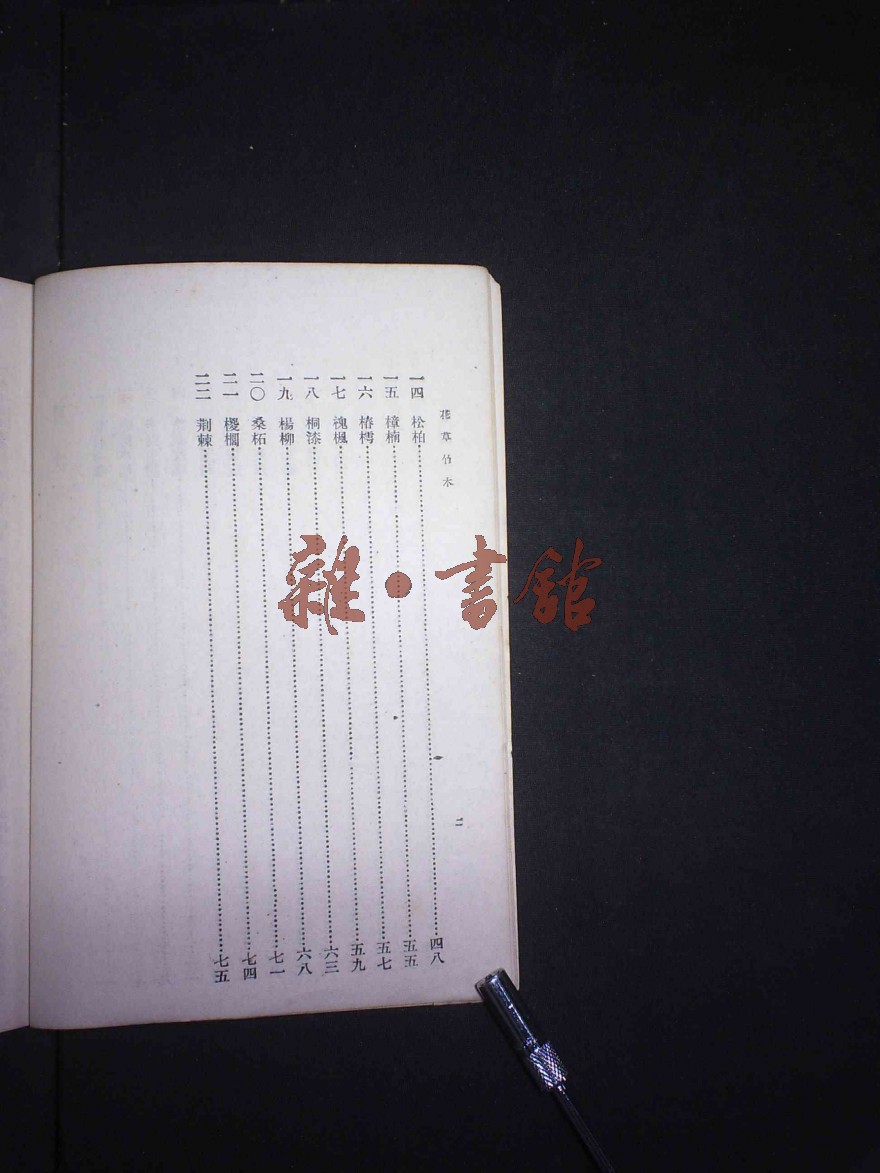 花草竹木
二
一四 松柏 四八
一五 樟楠 五五
一六 椿樗 五七
一七 槐楓 五九
一八 桐漆 六三
一九 楊柳 六八
二〇 桑柘 七一
二一 椶櫚 七四
二二 荆棘 七五
雜・書館